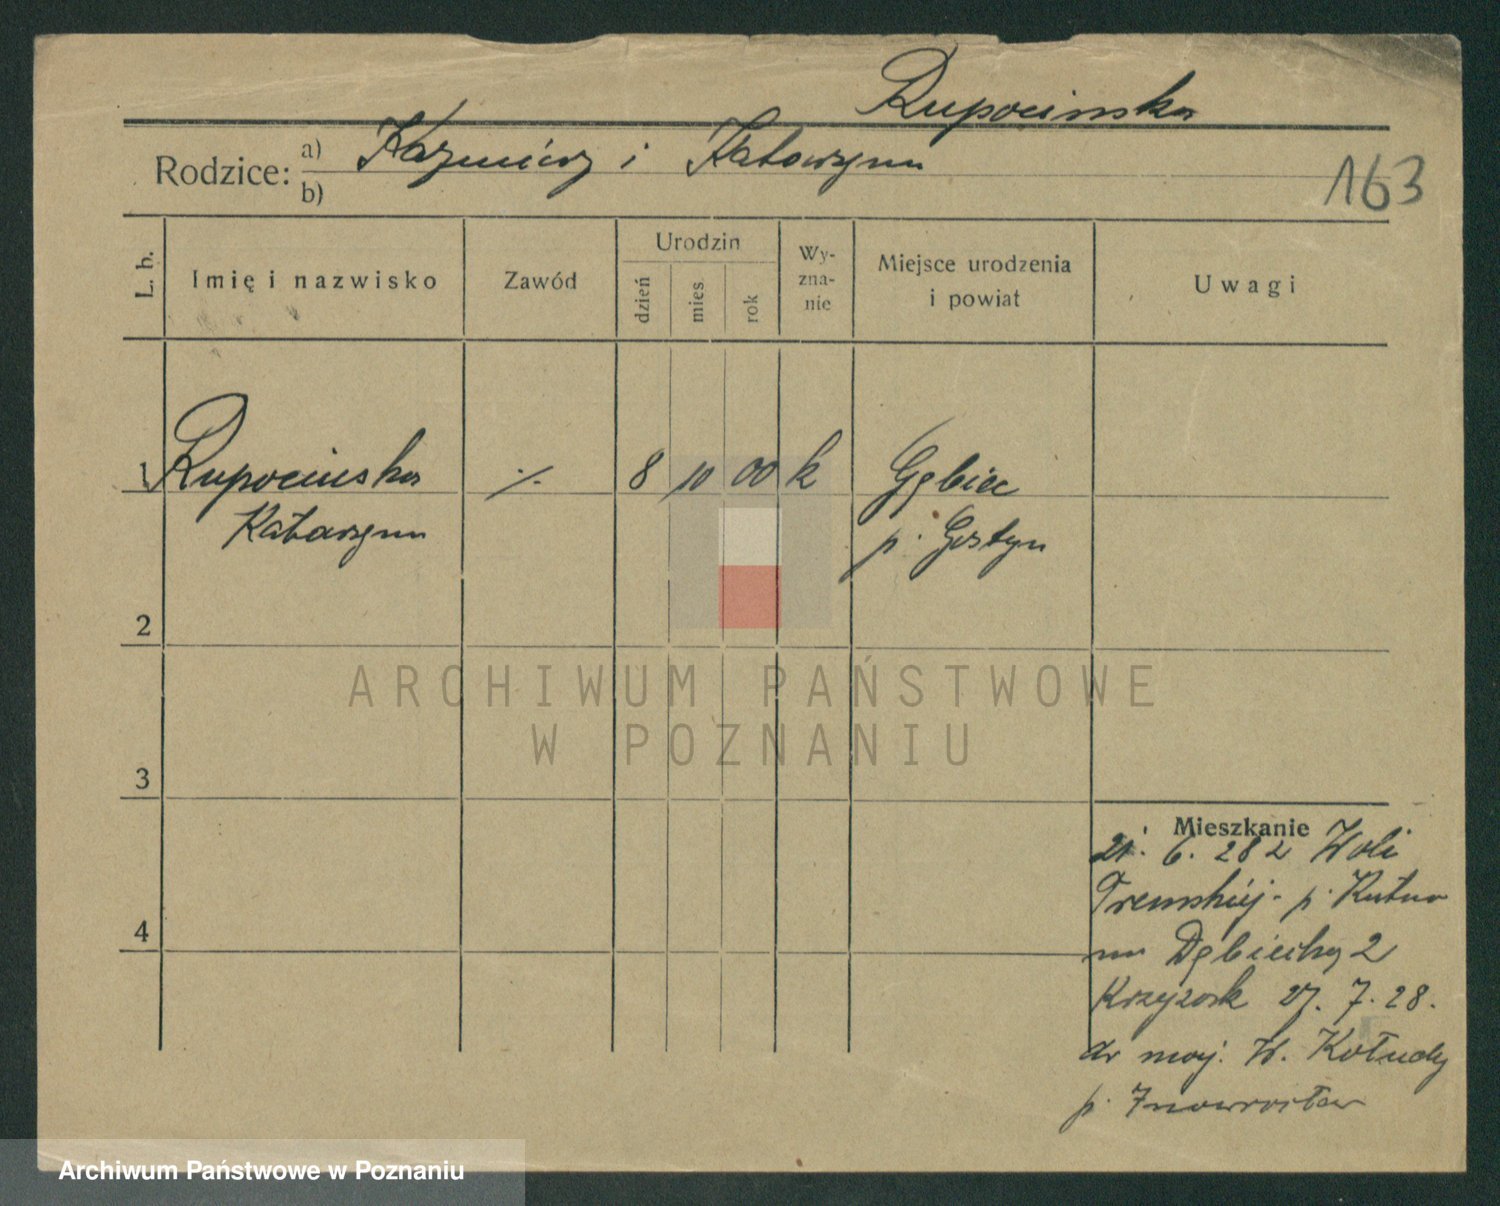 Rupocinska
Rodzice: a) Kazmierz i Katarzyna
b)
163
L. b.
Imię i nazwisko
Zawód
Urodzin
dzień
mies.
rok
Wy-
zna-
nie
Miejsce urodzenia
i powiat
Uwagi
1 Rupocinska ./. 8 10 00 k Gębice
Katarzyna p. Gostyn
2
ARCHIWUM PAŃSTWOWE
W POZNANIU
3
4
Mieszkanie
21. 6. 28 z Woli
p. Kutno
na Dębiecką 2
27. 7. 28.
do maj. W. Kołudy
p. Inowrocław
Archiwum Państwowe w Poznaniu